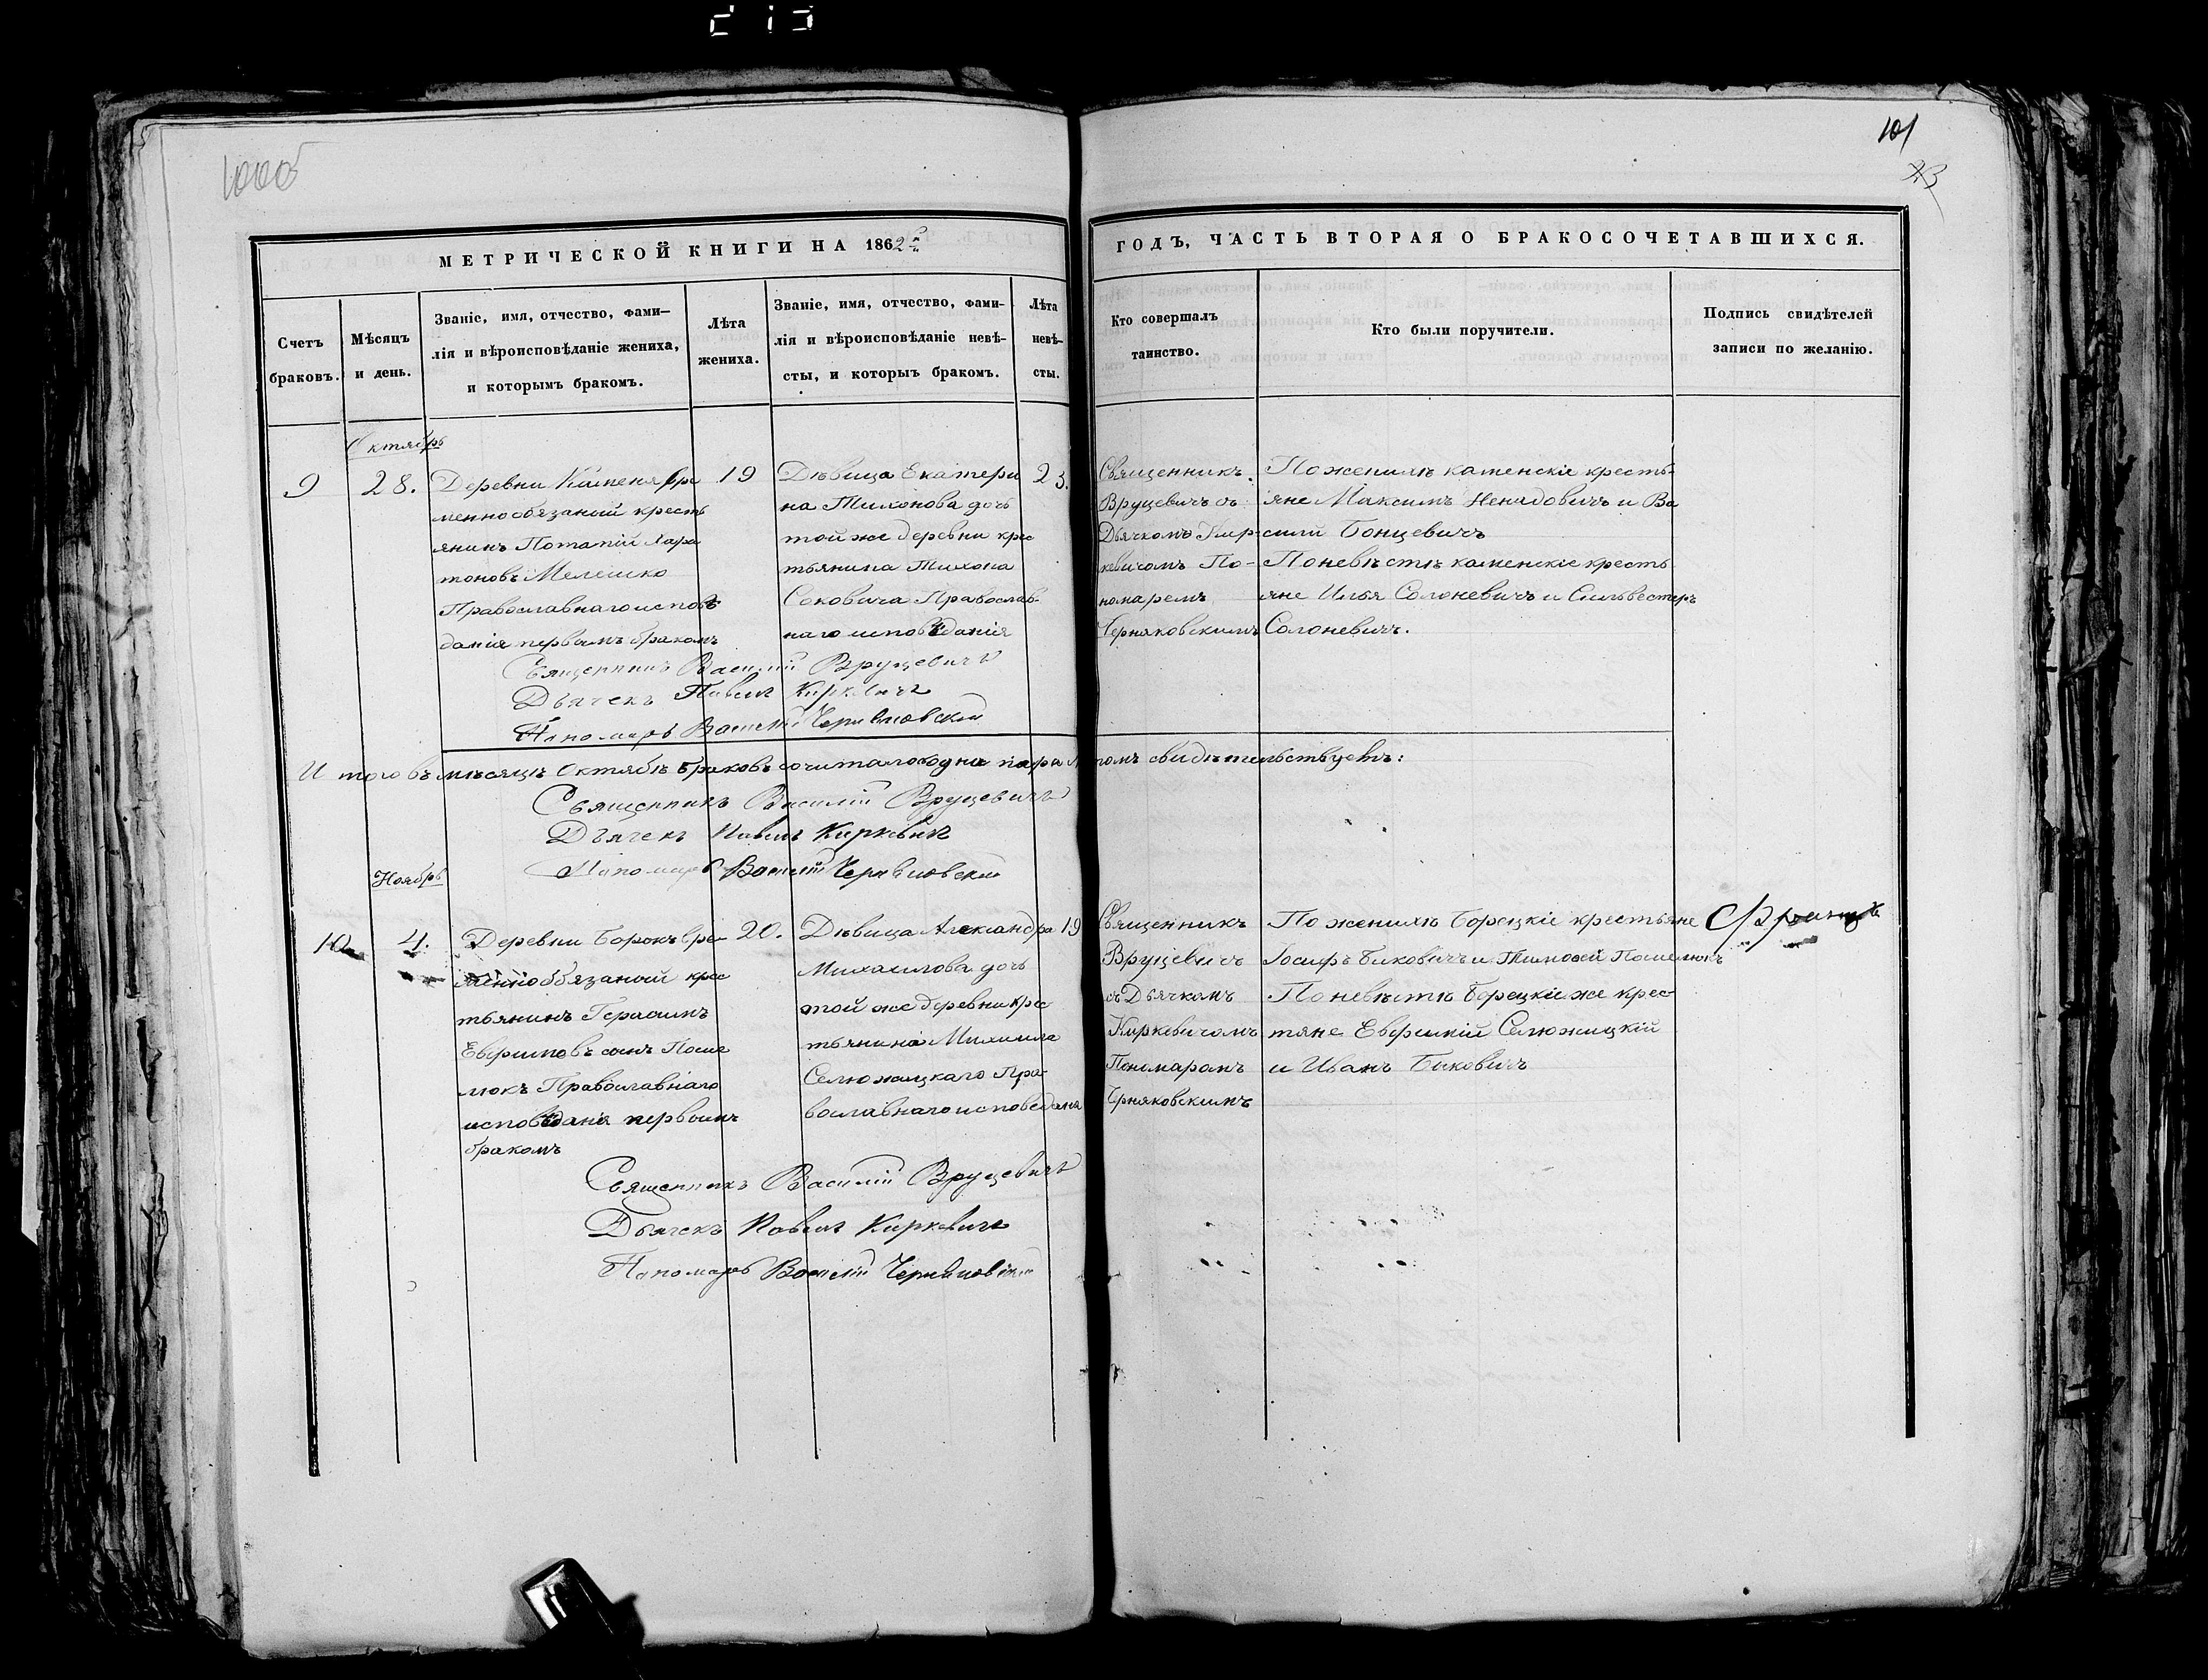 100об
101
23
МЕТРИЧЕСКОЙ КНИГИ НА 1862й
ГОДЪ, ЧАСТЬ ВТОРАЯ О БРАКОСОЧЕТАВШИХСЯ.
Счетъ
браковъ.
Мѣсяцъ
и день.
Званіе, имя, отчество, фами-
лія и вѣроисповѣданіе жениха,
и которымъ бракомъ.
Лѣта
жениха.
Званіе, имя, отчество, фами-
лія и вѣроисповѣданіе невѣ-
сты, и которыъ бракомъ.
Лѣта
невѣ-
сты.
Кто совершалъ
таинство.
Кто были поручители.
Подпись свидѣтелей
записи по желанію.
Октябрь
9
28.
Деревни Каменя вре
менно обязаный кресть
янинъ Потапій Хари
тоновъ Мелешко
Православнаго исповѣ
данія первымъ бракомъ
19
Дѣвица Екатери
на Тихонова дочь
той же деревни крес
тьянина Тихона
Соковича Православ-
наго исповѣданія
23.
Священникъ
Вруцевичъ съ
Дьячкомъ Кир-
кевичомъ По-
номаремъ
Черняковскимъ
По женихѣ каменскіе кресть-
яне Максимъ Ненадовичъ и Ва
силий Бонцевичъ
По невѣстѣ каменскіе кресть
яне Илья Солоневичъ и Сильвестеръ
Солоневичъ.
Священникъ Василій Вруцевичъ
Дьячекъ Павелъ Киркевичъ
Пономарь Василій Черняковскій
И того въ мѣсяцѣ Октябѣ браковъ сочиталось одна пара въ томъ свидѣтельствуетъ:
Священникъ Василій Вруцевичъ
Дьячекъ Павелъ Киркевичъ
Пономарь Василій Черняковскій
Ноябрь
10
4.
Деревни Борокъ вре-
менно обязаный крес
тьянинъ Герасимъ
Евфимовъ сынъ Поме
люкъ Православнаго
исповѣданія первымъ
бракомъ
20.
Дѣвица Александра
Михаилова дочь
той же деревни крес
тьянина Михаила
Селюжицкаго Пра-
вославнаго исповеданія
19
Священникъ
Вруцевичъ
съ Дьячкомъ
Киркевичомъ
Пономаромъ
Черняковскимъ
По женихѣ Борецкіе крестьяне
Іосифъ Биковичъ и Тимофей Помелюкъ
По невѣстѣ Борецкіе же крес-
тяне Евфимій Селюжицкій
и Иванъ Биковичъ
Священникъ Василій Вруцевичъ
Дьячекъ Павелъ Киркевичъ
Пономарь Василій Черняковскій